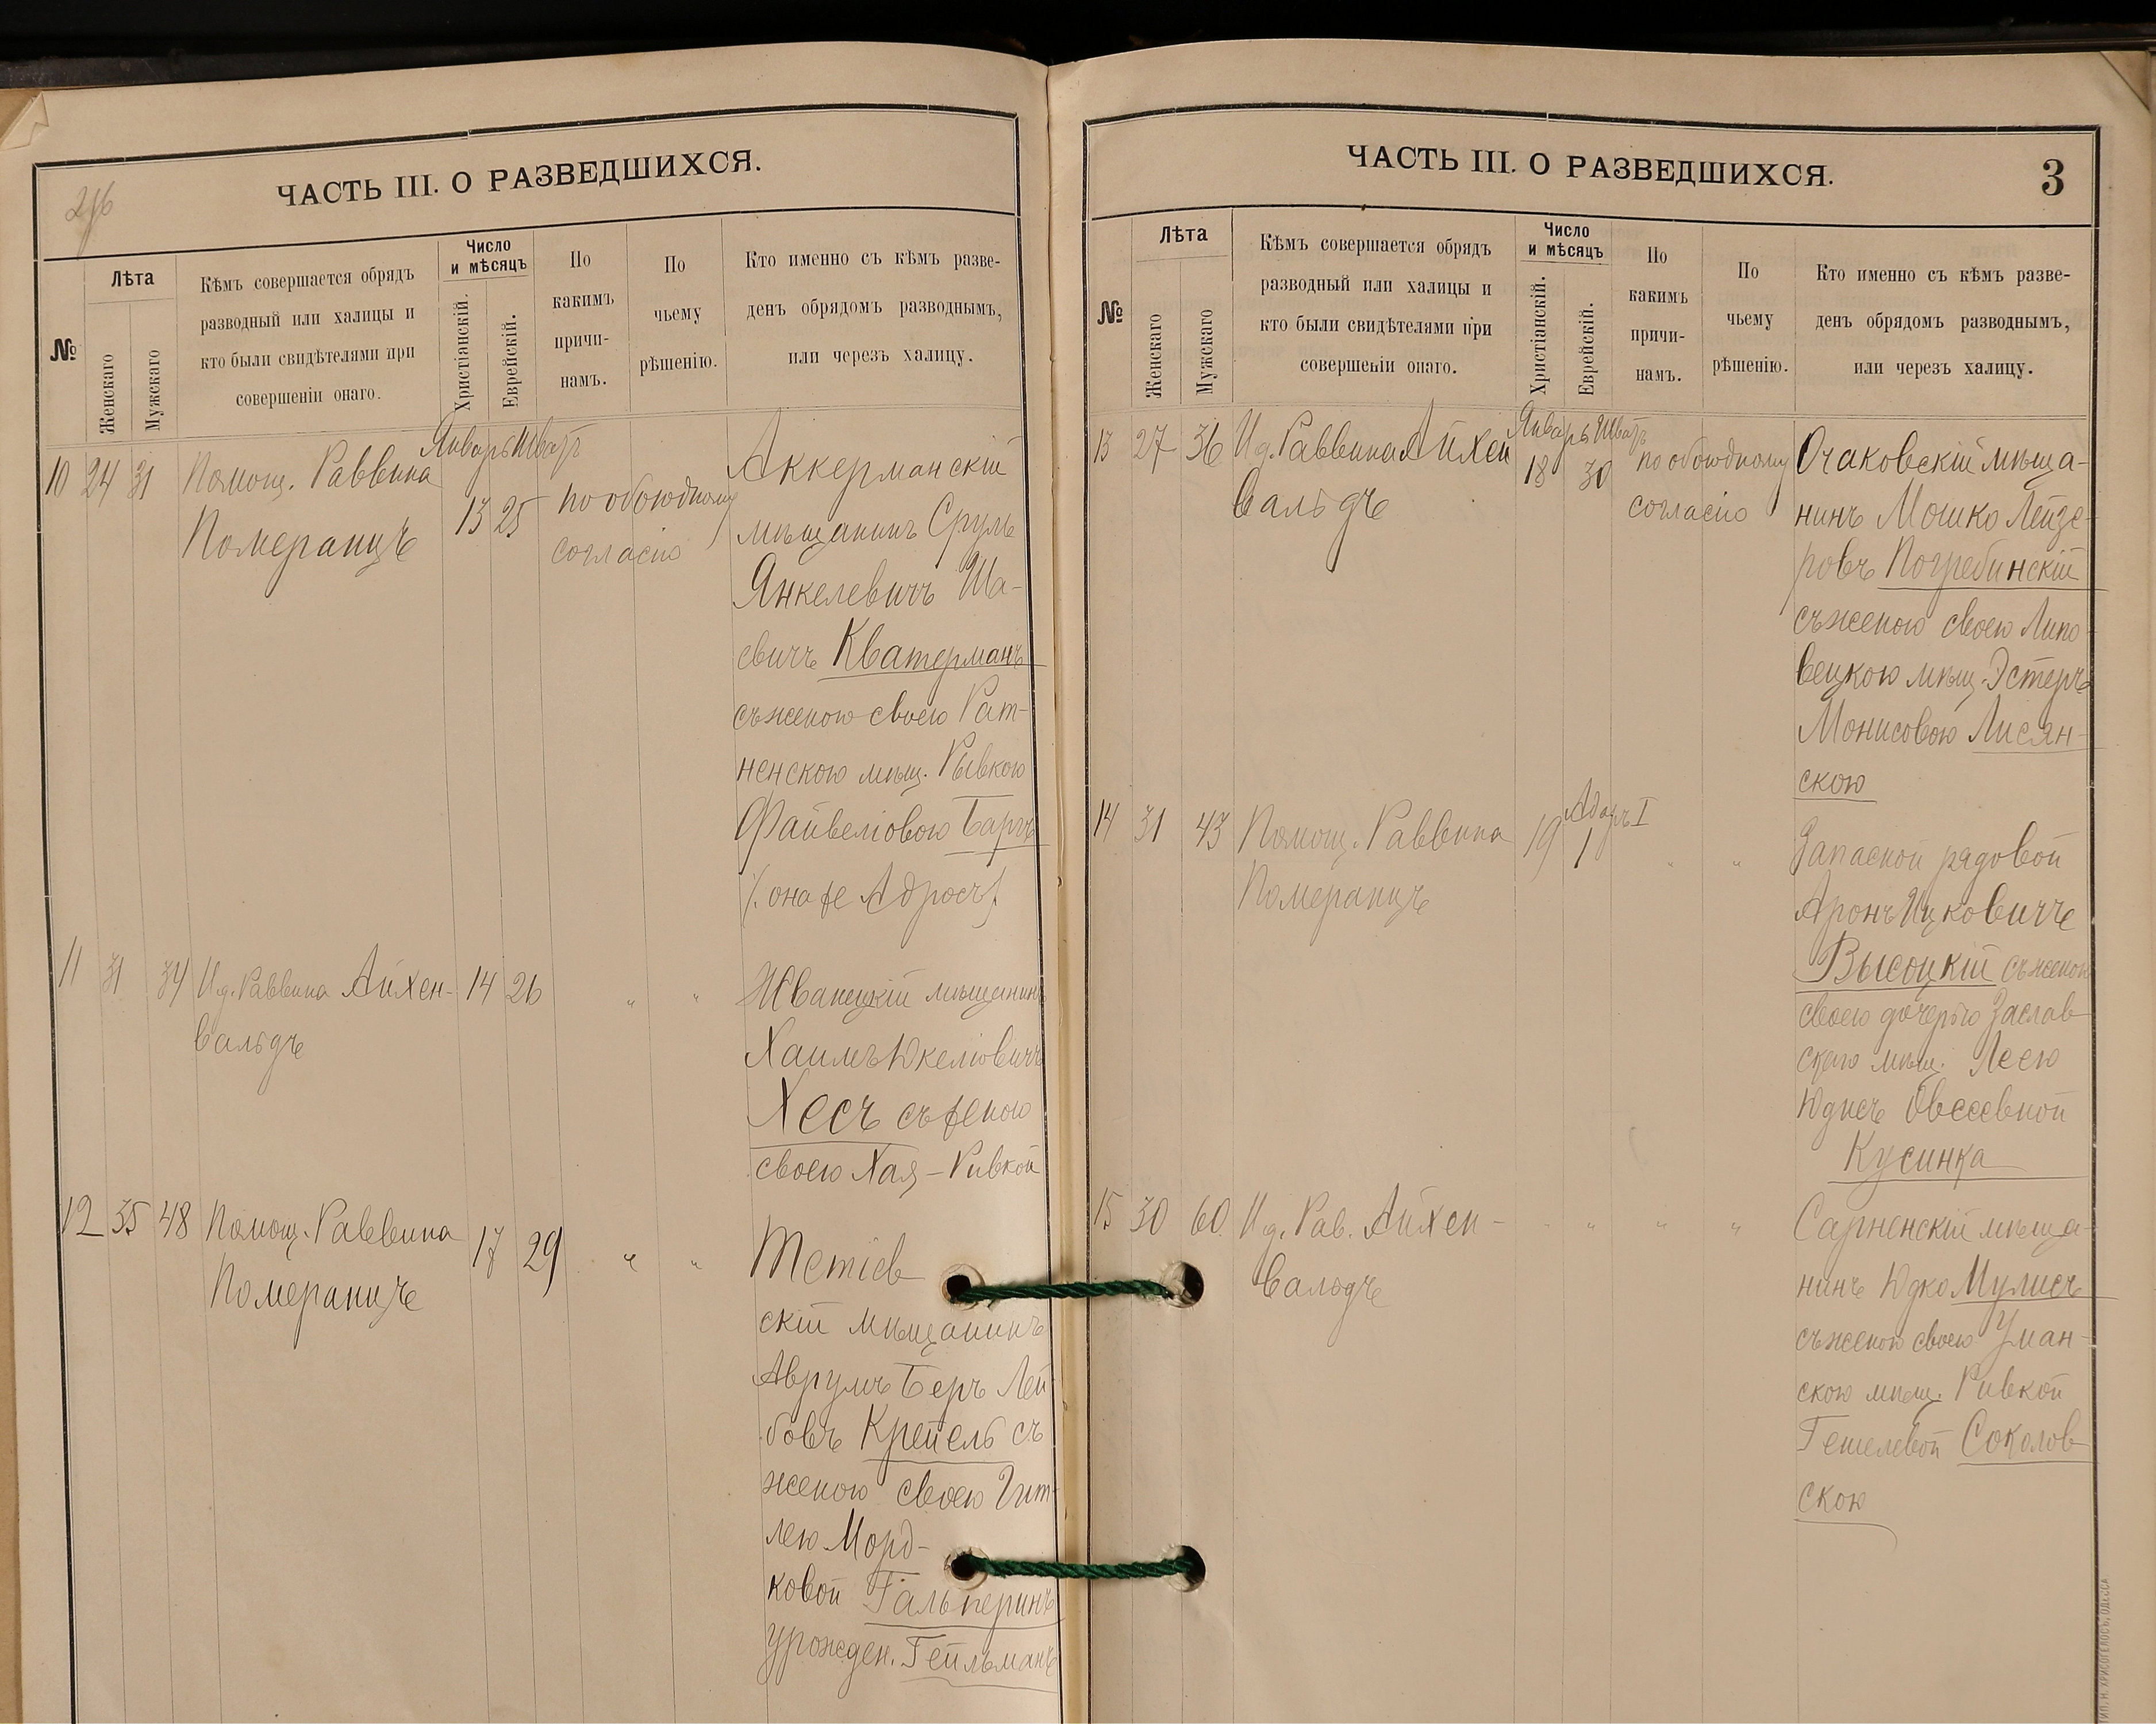 276
ЧАСТЬ III. О РАЗВЕДШИХСЯ.
№
Лѣта
Женскаго
Мужскаго
Кѣмъ совершается обрядъ
разводный или халицы и
кто были свидѣтелями при
совершеніи онаго.
Число
и мѣсяцъ
Христіанскій.
Еврейскій.
По
какимъ
причи-
намъ.
По
чьему
рѣшенію.
Кто именно съ кѣмъ разве-
денъ обрядомъ разводнымъ,
или черезъ халицу.
Январь Шватъ
10 24 31 Помощ. Раввина
Померанцъ
13 25
по обоюдному
согласію
Аккерманскій
мѣщанинъ Сруль
Янкелевичъ Ша-
евичъ Кватерманъ
съ женою своею Рат-
ненскою мѣщ. Рывкою
Файвеліовою Баргъ
/: она же Адрость :/
11 31 34 И. д. Раввина Айхен-
вальдъ
14 26 " "
Жванецкій мѣщанинъ
Хаимъ Юкеліовичъ
Хесъ съ женою
своею Хая-Ривкой
12 35 48 Помощ. Раввина
Померанцъ
17 29 " "
Тетіев
скій мѣщанинъ
Аврумъ Беръ Лей
бовъ Крейель съ
женою своею Гит-
лею Морд-
ковой Гальперинъ
урожден. Гейльманъ
ЧАСТЬ III. О РАЗВЕДШИХСЯ.
3
№
Лѣта
Женскаго
Мужскаго
Кѣмъ совершается обрядъ
разводный или халицы и
кто были свидѣтелями при
совершеніи онаго.
Число
и мѣсяцъ
Христіанскій.
Еврейскій.
По
какимъ
причи-
намъ.
По
чьему
рѣшенію.
Кто именно съ кѣмъ разве-
денъ обрядомъ разводнымъ,
или черезъ халицу.
Январь Шватъ
13 27 36 И. д. Раввина Айхен
вальдъ
18 30
по обоюдному
согласію
Очаковскій мѣща-
нинъ Мошко Лейзе-
ровъ Погребинскій
съ женою своею Липо-
вецкою мѣщ. Эстеръ
Монисовою Лисян-
скою
Адаръ I
14 31 43 Помощ. Раввина
Померанцъ
19 1 " "
Запасной рядовой
Аронъ Ицковичъ
Высоцкій съ женою
своею дочерью Заслав
скаго мѣщ. Леею
Юдисъ Овсеевной
Кусинка
15 30 60. И. д. Рав. Айхен-
вальдъ
- " " "
Сарненскій мѣща-
нинъ Юдко Мулисъ
съ женою своею Уман-
скою мѣщ. Ривкой
Гешелевой Соколов
скою
ТИП. Н. ХРИСОГЕЛОСЪ, ОДЕССА